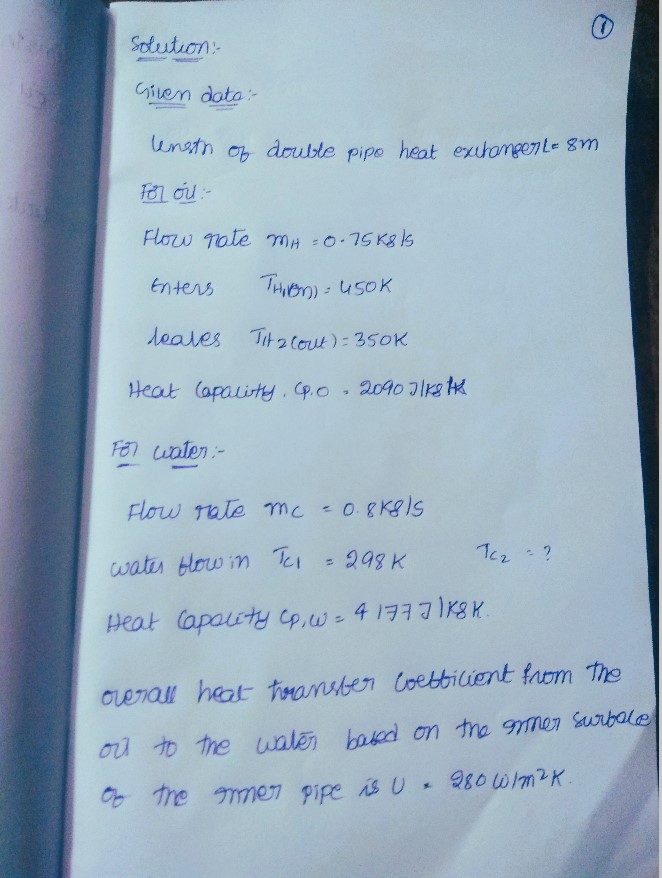 1
Solution:-
Given data:-
length of double pipe heat exchanger L = 8m
For oil:-
Flow rate mH = 0.75 Kg/s
Enters TH1(in) = 450K
leaves TH2(out) = 350K
Heat Capacity, Cp.o = 2090 J/kg K
For water:-
Flow rate mc = 0.8Kg/s
water flow in Tc1 = 298K Tc2 = ?
Heat Capacity Cp,w = 4177 J/KgK.
overall heat transfer Coefficient from the
oil to the water based on the inner surface
of the inner pipe is U = 280 W/m2K.